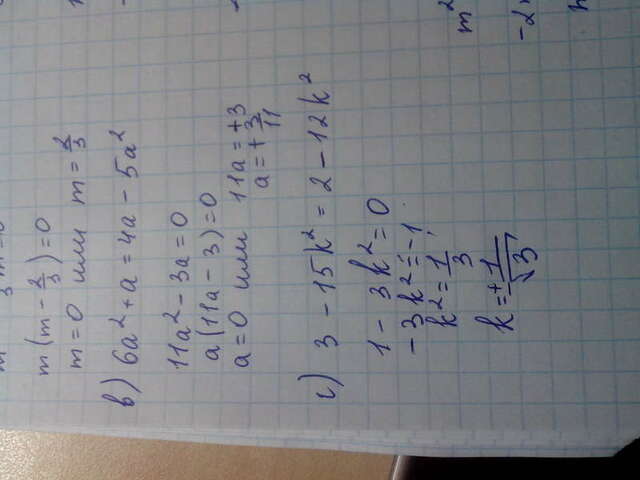 m(m - 2/3) = 0
m = 0 или m = 2/3
в) 6a² + a = 4a - 5a²
11a² - 3a = 0
a(11a - 3) = 0
a = 0 или 11a = +3
a = + 3/11
г) 3 - 15k² = 2 - 12k²
1 - 3k² = 0
-3k² = -1
k² = 1/3
k = ± 1/√3